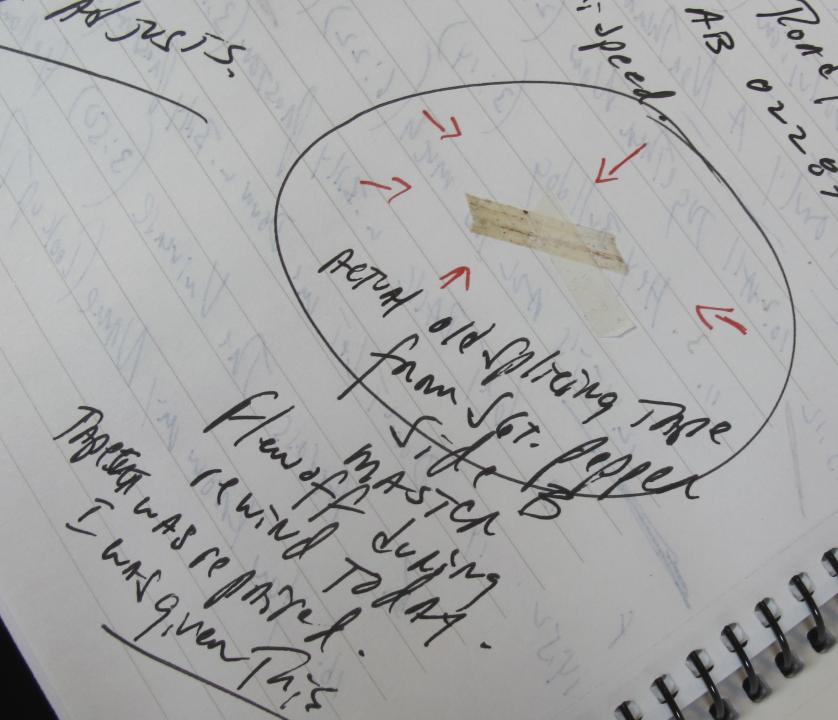 ADJUSTS.
speed.
ROAD
AB 0228
Actual old splicing Tape
from Sgt. Pepper
Side B
MASTER
flew off during
rewind TODAY.
Tape was repaired.
I was given This